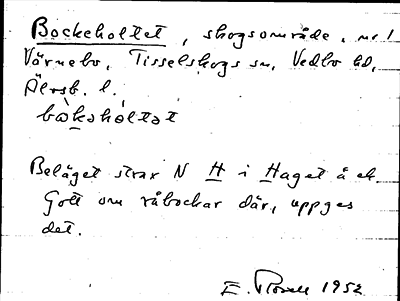 Bockeholtet, skogsområde. nr 1
Värnebo, Tisselskogs sn, Vedbo hd,
Älvsb. l.
bòkəhòltət
Beläget strax N H i Haget å ek.
Gott om råbockar där, uppges
det.
E. 1952